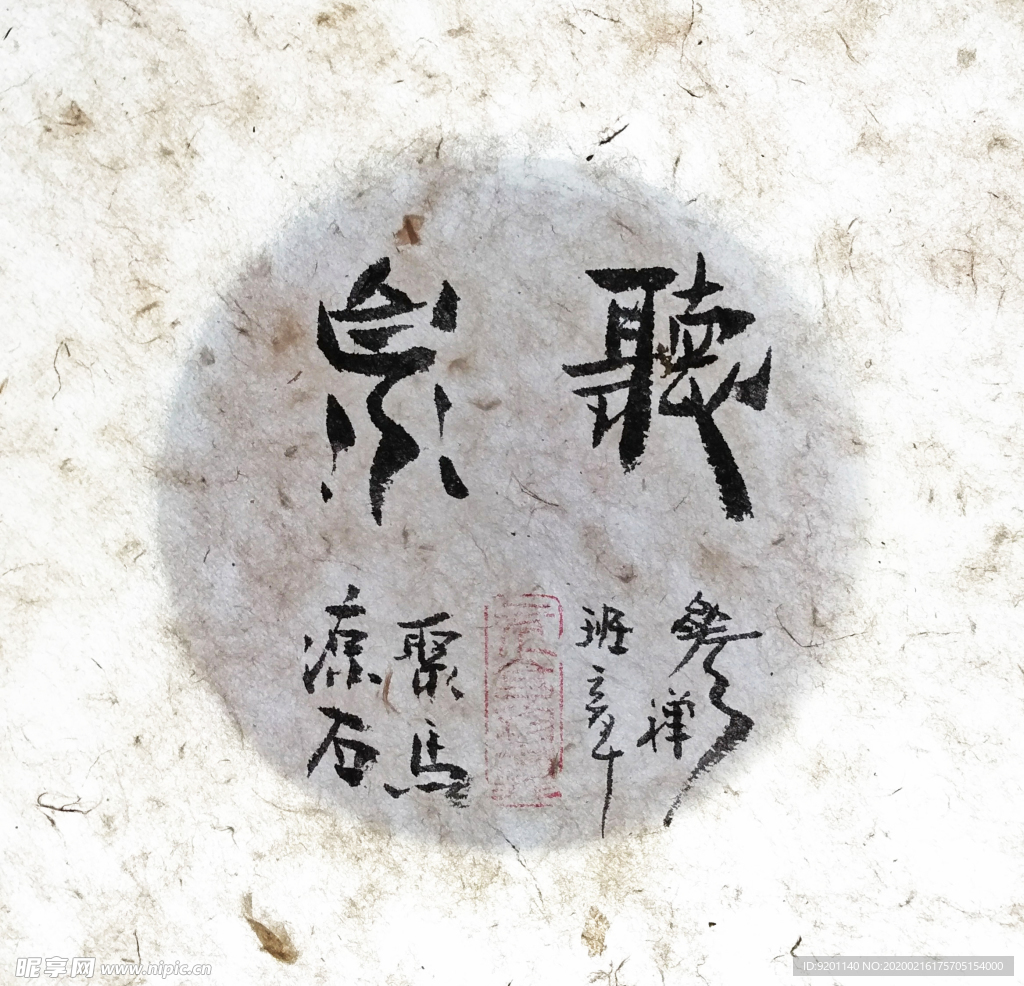 聽泉
參禅
班章
聚馬
石
昵享网 www.nipic.cn
ID:9201140 NO:20200216175705154000